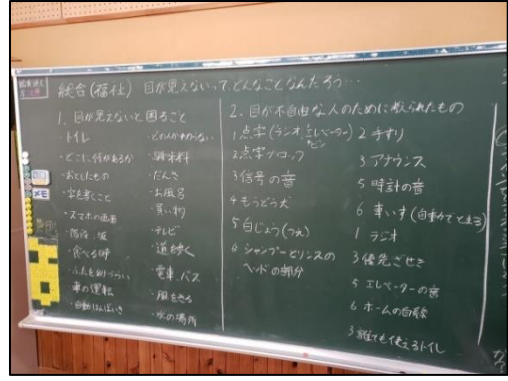 総合(福祉) 目が見えないってどんなことなんだろう…
1. 目が見えないと困ること
・トイレ
・どこに何があるか
・おとしもの
・字を書くこと
・スマホの画面
・階段、坂
・食べる時
・車の運転
・どの人かわからない
・調味料
・お風呂
・買い物
・テレビ
・道を歩く
・電車、バス
・服をきる
・水の場所
2. 目が不自由な人のために作られたもの
1 点字(ラジオ エレベーター)
2 点字ブロック
3 信号の音
4 もうどう犬
5 白じょう(つえ)
6 シャンプーとリンスの
ヘッドの部分
2 手すり
3 アナウンス
5 時計の音
6 車いす(自動で止まる)
1 ラジオ
3 優先ざせき
5 エレベーターの音
6 ホームの白線
3 誰でも使えるトイレ
メモ